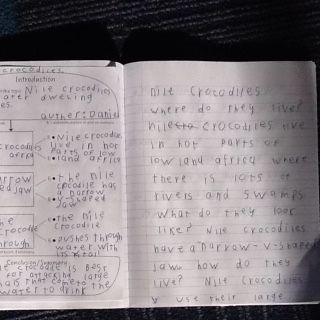 crocodiles
Introduction
Nile crocodiles
ater dweling
es.
auther: Daniel
• Nile crocodiles
live in hot
parts of low
land africa
crocodiles
africa
arrow
ed jaw
• the nile
crocodile has
a narrow
V-shaped
jaw
the
crocodile
through
• the nile
crocodile
• pushes through
water with
its tail
Conclusion/Summary
crocodile is best
for attacking large
that come to the
water to drink
Nile Crocodiles
where do they live?
Nile crocodiles live
in hot parts of
low land africa where
there is lots of
rivers and swamps
What do they look
like? Nile crocodiles
have a narrow-v-shaped
jaw. how do they
live? Nile crocodiles
use their large